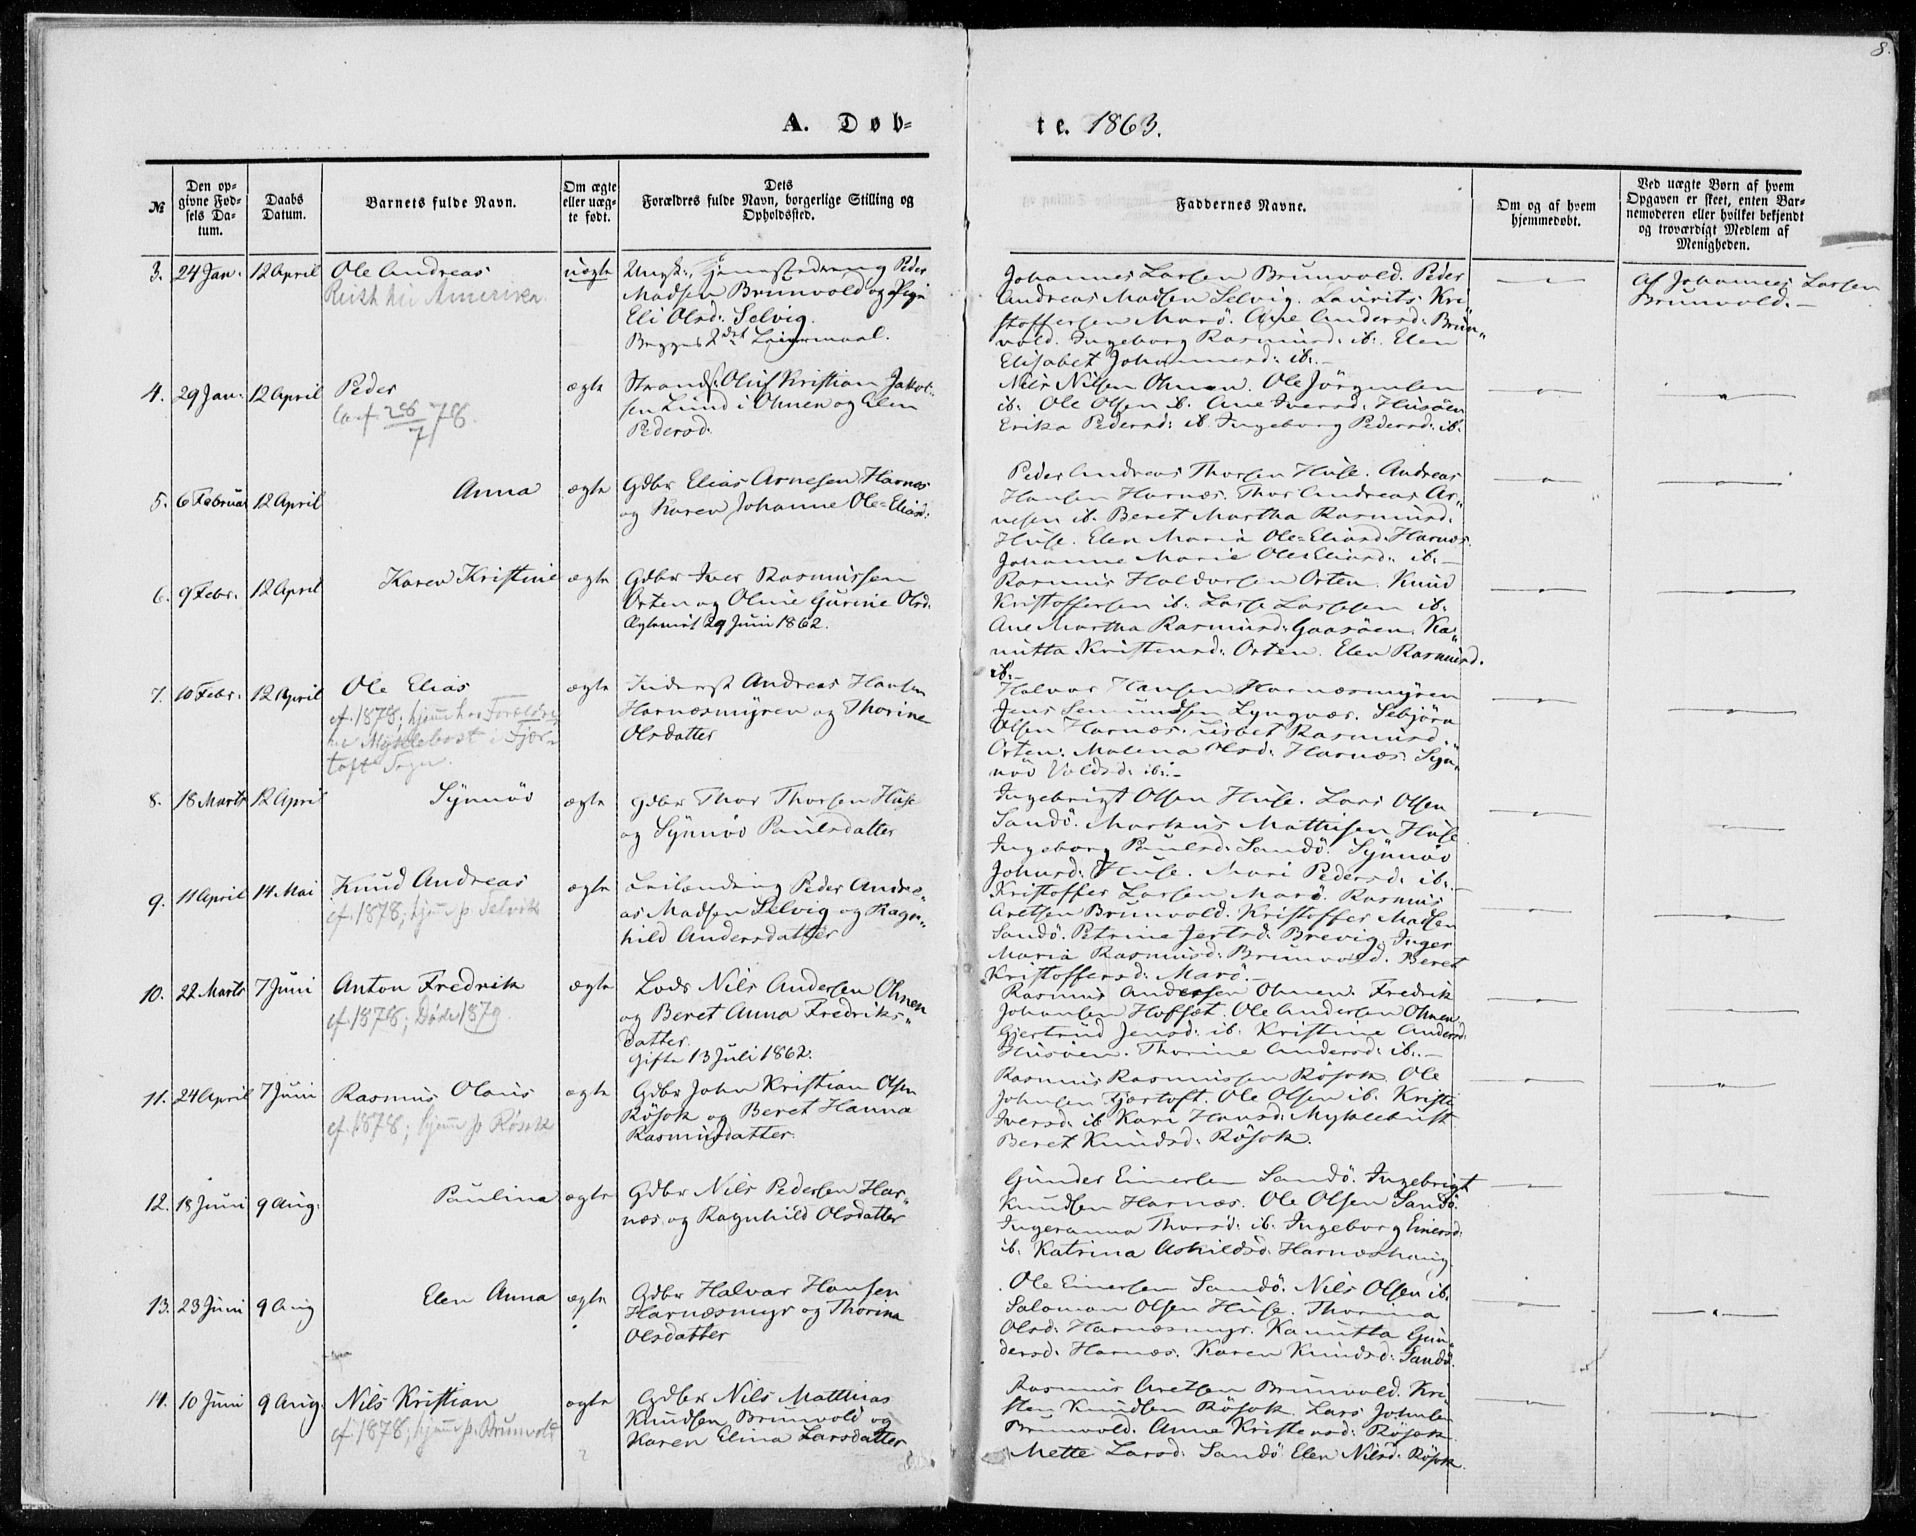 8.
A. Døb-
te. 1863.
№
Den op-
givne Fød-
sels Da-
tum.
Daabs
Datum.
Barnets fulde Navn.
Om ægte
eller uæg-
te født.
Dets
Forældres fulde Navn, borgerlige Stilling og
Opholdssted.
Faddernes Navne.
Om og af hvem
hjemmedøbt.
Ved uægte Børn af hvem
Opgaven er skeet, enten Bar-
nemoderen eller hvilket bekjendt
og troværdigt Medlem af
Menigheden.
3. 24 Jan. 12 April Ole Andreas
Reist til Amerika.
uægte
Ungk. Peder
Madsen Brunvold og Pige
Eli Olsd: Selvig.
Begges 2det Leiermaal.
Johannes Larsen Brunvold. Peder
Andreas Madsen Selvig. Laurits Kri
stoffersen Marö. Ane Andersd: Brun„
vold. Ingeborg Rasmusd: ib. Elen
Elisabet Johannesd: ib.
Af Johannes Larsen
Brunvold.
4. 29 Jan: 12 April Peder
78.
ægte
Strands: Oluf Kristian Jakob-
sen Lund i Ohnen og Elen
Pedersd.
Nils Nilsen Ohnen. Ole Jörgensen
ib: Ole Olsen ib. Ane Iversd: Husöen
Erika Pedersd: ib. Ingeborg Pedersd: ib.
5. 6 Februar 12 April Anna
ægte
Gdbr Elias Arnesen Harnæs
og Karen Johanne Ole=Eliasd:
Peder Andreas Thorsen Huse. Andreas
Hansen Harnæs. Thor Andreas Ar„
nesen ib. Beret Martha Rasmusd:
Huse. Elen Maria Ole=Eliasd: Harnæs.
Johanne Marie Ole=Eliasd: ib.
6. 9 Febr. 12 April Karen Kristine
ægte
Gdbr Iver Rasmussen
Orten og Oline Gurine Olsd.
Ægteviet 29 Juni 1862.
Rasmus Haldorsen Orten. Knud
Kristoffersen ib: Lasse Lassesen ib.
Ane Martha Rasmusd: Gaasöen. Ka„
nutta Kristensd: Orten. Elen Rasmusd.
ib.
7. 10 Febr. 12 April Ole Elias
cf. 1878; hjem hos Forældre
ne Myklebost i Fjær-
toft Sogn.
ægte
Inderst Andreas Hansen
Harnæsmyren og Thorine
Olsdatter
Halvar Hansen Harnæsmyren
Jens Semundsen Lyngvær. Sebjörn
Olsen Harnæs. Lisbet Rasmusd.
Orten. Malena Olsd: Harnæs. Syn„
növ Voldsd: ib.
8. 18 Marts 12 April Synnöv
ægte
Gdbr Thor Thorsen Huse
og Synnöv Paulsdatter
Ingebrigt Olsen Huse. Lars Olsen
Sandö. Markus Mathisen Huse
Ingeborg Paulsd: Sandö. Synnöv
Johnsd: Huse. Mari Pedersd: ib.
9. 11 April 14 Mai Knud Andreas
cf. 1878; hjem p. Selvik
ægte
Leilænding Peder Andre„
as Madsen Selvig og Ragn„
hild Andersdatter
Kristoffer Larsen Marö. Rasmus
Aretsen Brunvold. Kristoffer Madsen
Sandö. Petrine Jertsd: Brevig. Inger
Maria Rasmusd: Brunvold. Beret
Kristoffersd: Marö.
10. 22 Marts 7 Juni Anton Fredrik
cf. 1878; Döde 1879.
ægte
Lods Nils Andersen Ohnen
og Beret Anna Fredriks„
datter.
Gifte 13 Juli 1862.
Rasmus Andersen Ohnen. Fredrik
Johansen Hofset. Ole Andersen Ohnen.
Gjertrud Jensd: ib. Kristine Andersd:
Husöen. Thorine Andersd: ib.
11. 24 April 7 Juni Rasmus Olaus
cf. 1878; hjem p. Rösok
ægte
Gdbr John Kristian Olsen
Rösok og Beret Hanna
Rasmusdatter.
Rasmus Rasmussen Rösok. Ole
Johnsen Fjærtoft. Ole Olsen ib. Kristi
Iversd: ib Kari Hansd: Myklebust
Beret Knudsd: Rösok.
12. 18 Juni 9 Aug: Paulina
ægte
Gdbr Nils Pedersen Har„
næs og Ragnhild Olsdatter
Gunder Einersen Sandö. Ingebrigt
Knudsen Harnæs. Ole Olsen Sandö.
Ingeranna Thorsd: ib. Ingeborg Einersd:
ib. Katrina Askildsd: Harnæshaug
13. 23 Juni 9 Aug Elen Anna
ægte
Gdbr Halvar Hansen
Harnæsmyr og Thorina
Olsdatter
Ole Einersen Sandö. Nils Olsen ib.
Salomon Olsen Huse. Thorina
Olsd: Harnæsmyr. Kanutta Gun„
dersd: Harnæs. Karen Knudsd: Sandö.
14. 10 Juni 9 Aug. Nils Kristian
cf. 1878; hjem p. Brunvold
ægte
Gdbr Nils Matthias
Knudsen Brunvold og
Karen Elina Larsdatter
Rasmus Aretsen Brunvold. Kri
sten Knudsen Rösok. Lars Johnsen
Brunvold. Anne Kristensd: Rösok.
Mette Larsd: Sandö Elen Nilsd: Rösok.